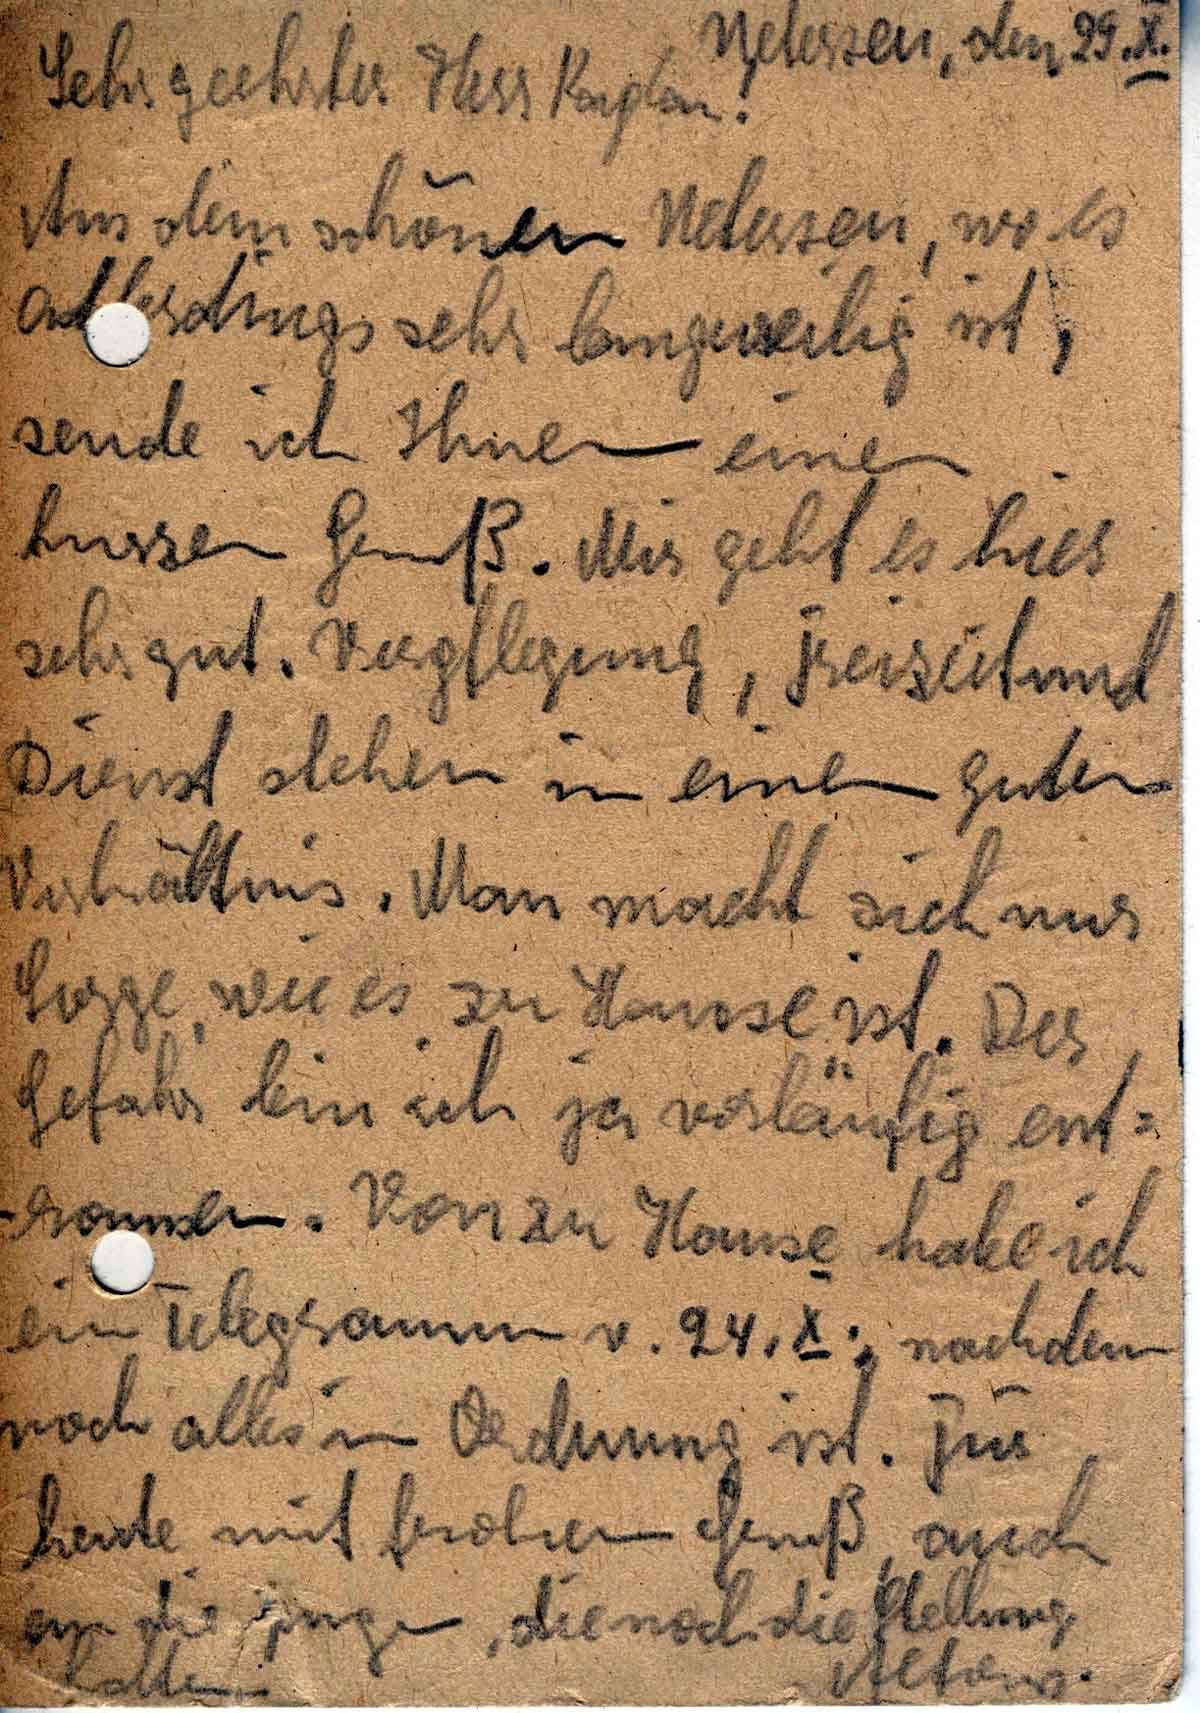 Uetersen, den 29.X.
Sehr geehrter Herr Kaplan!
Aus dem schönen Uetersen, wo es
allerdings sehr langweilig ist,
sende ich Ihnen einen
kurzen Gruß. Mir geht es hier
sehr gut. Verpflegung, Freizeit und
Dienst stehen in einen guten
Verhältnis. Man macht sich nur
Sorge, wie es zu Hause ist. Der
Gefahr bin ich ja vorläufig ent=
-ronnen. Von zu Hause habe ich
ein Telegramm v. 24.X., nachdem
noch alles in Ordnung ist. Für
heute mit frohen Gruß, auch
an die Jungen, die noch die Stellung
halten